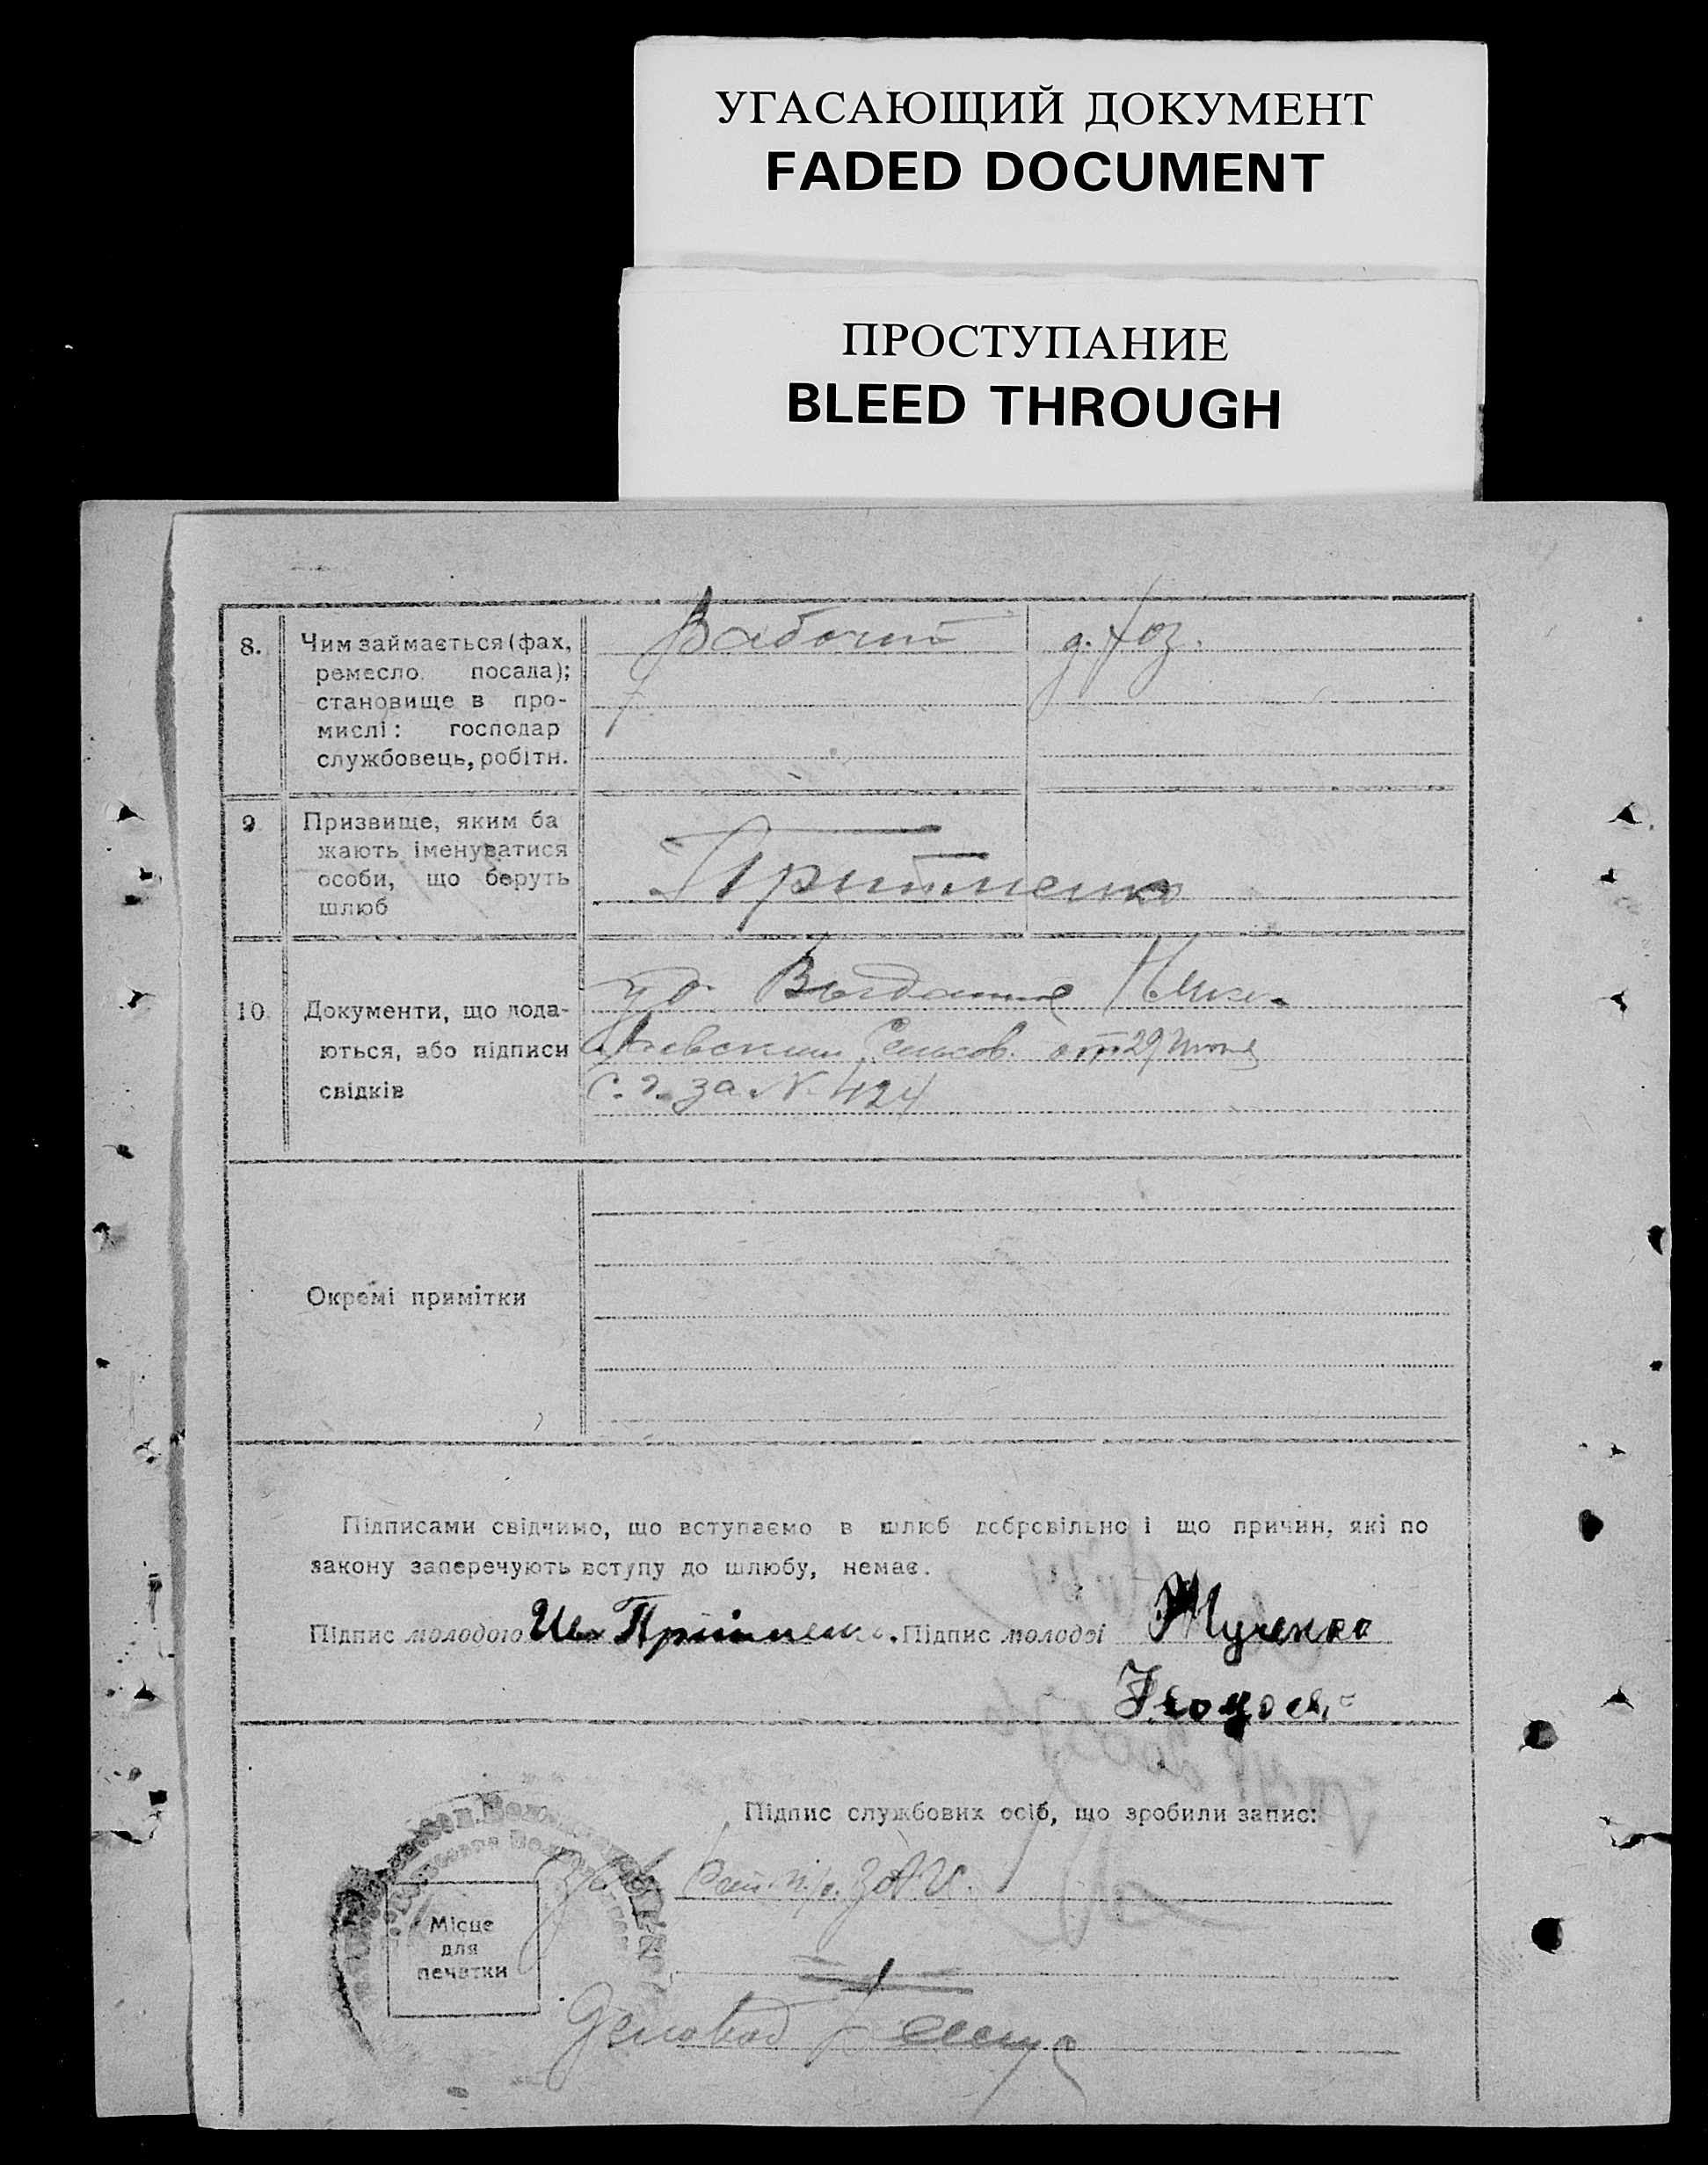 УГАСАЮЩИЙ ДОКУМЕНТ
FADED DOCUMENT
ПРОСТУПАНИЕ
BLEED THROUGH
8. Чим займається (фах, ремесло посада); становище в промислі: господар службовець, робітн.
Рабочий
д. хоз.
9 Призвище, яким бажають іменуватися особи, що беруть шлюб
Прийменко
10 Документи, що додаються, або підписи свідків
уд. Выданное
Сельсов. от 29 Июня
С. г. за N 424
Окремі примітки
Підписами свідчимо, що вступаємо в шлюб добровільно і що причин, які по
закону заперечують вступу до шлюбу, немає.
Підпис молодого Ив Прийменко. Підпис молодої
Підпис службових осіб, що зробили запис:
Зав.
Місце
для
печатки
Деловод